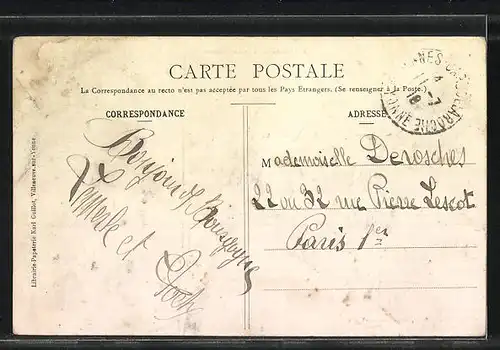 CARTE POSTALE
La Correspondance au recto n'est pas acceptée par tous les Pays Etrangers. (Se renseigner à la Poste.)
CORRESPONDANCE
Bonjour de Bourgogne
et
ADRESSE
Mademoiselle Derosches
22 ou 32 rue Pierre Lescot
Paris 1er
Librairie-Papeterie Karl Guillot, Villeneuve-sur-Yonne
YONNE